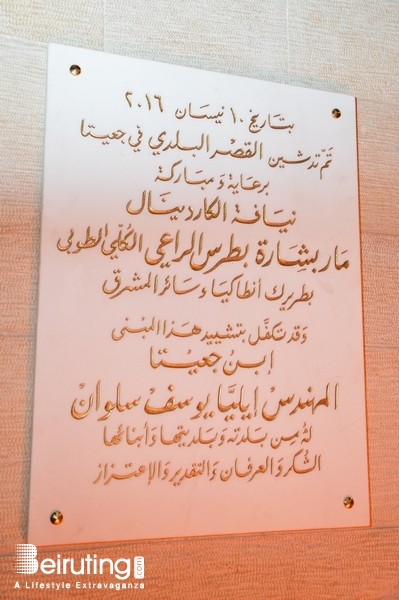 بتاريخ ١٠ نيسان ٢٠١٦
تمّ تدشين القصر البلدي في جعيتا
برعاية ومباركة
نيافة الكاردينال
مار بشارة بطرس الراعي الكلّي الطوبى
بطريرك أنطاكيا وسائر المشرق
وقد تكفّل بتشييد هذا المبنى
إبن جعيتا
المهندس إيليّا يوسف سلوان
له من بلدته وبلديتها وأبنائها
الشكر والعرفان والتقدير والإعتزاز
Beiruting.com
A Lifestyle Extravaganza